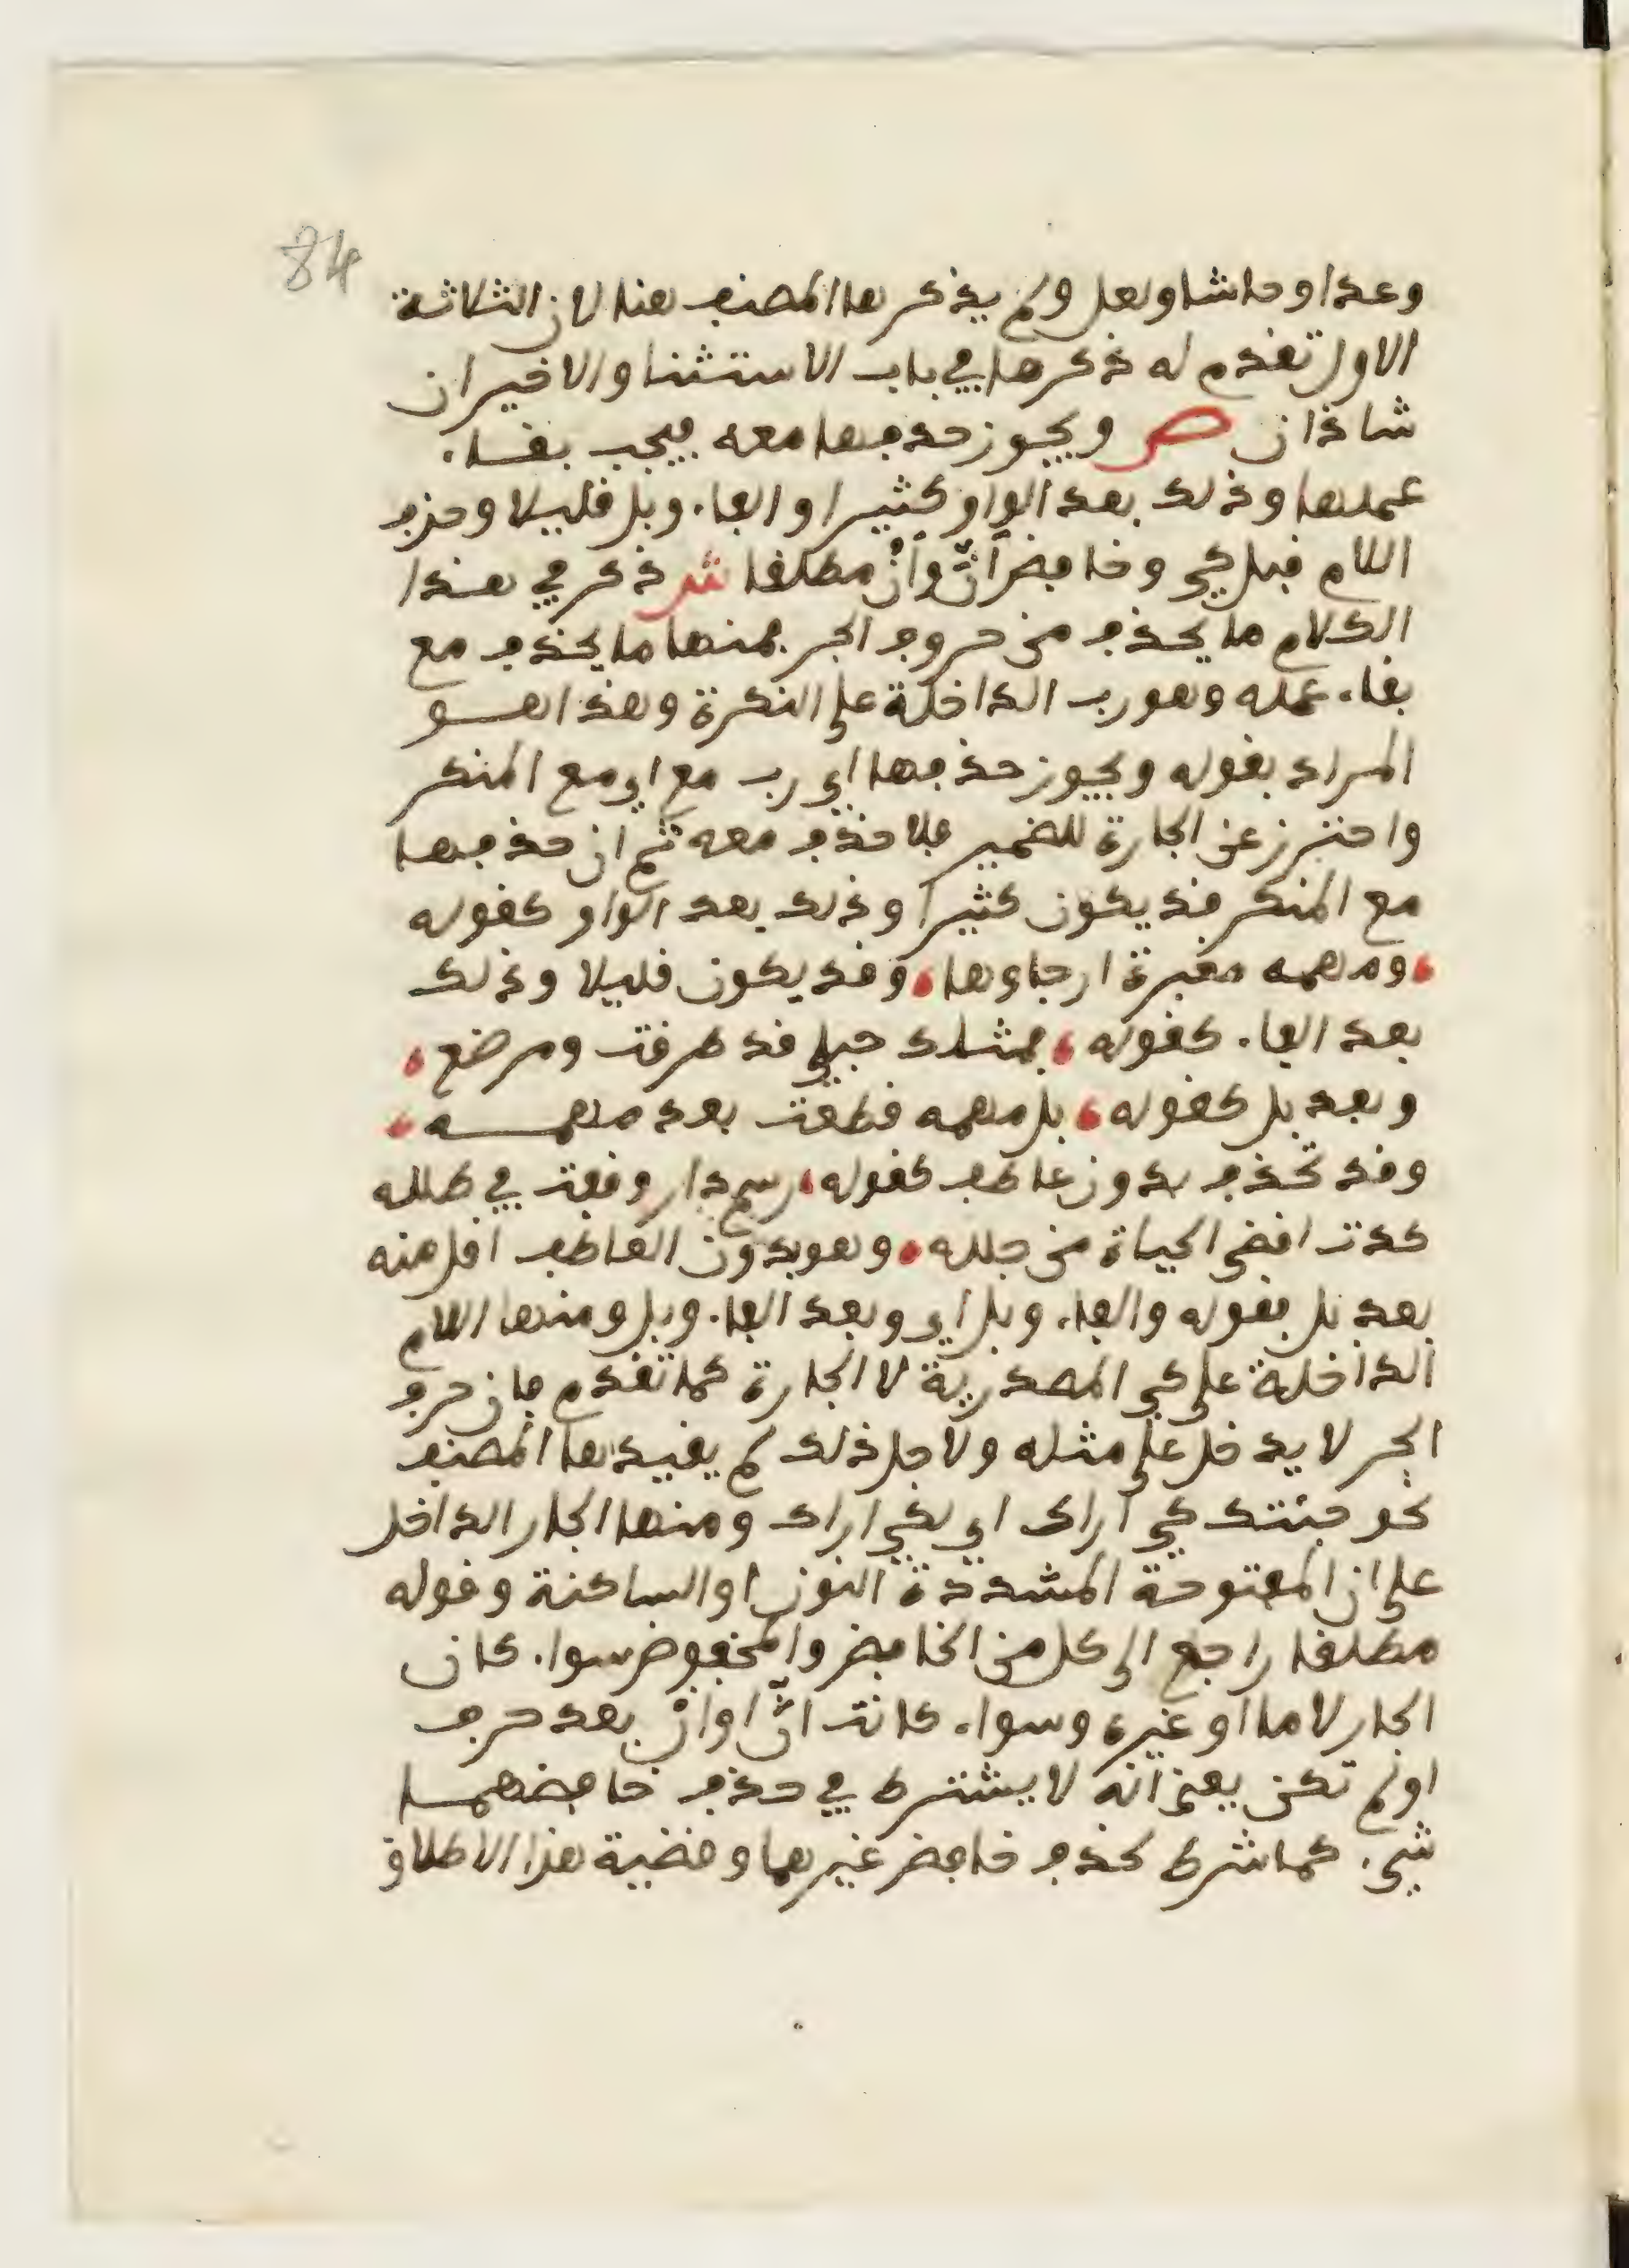 84
وعدا وحاشا ولعل ولم يذكرها المصنف هنا لان الثلاثة
الاول تقدم له ذكرها في باب الاستثنا والاخيران
شاذان ص ويجوز حذفها معه فيجب بقاء
عملها وذلك بعد الواو كثيرا والفاء وبل قليلا وحذف
اللام قبل كي وخافض أنّ وأنْ مطلقا ش ذكر في هذا
الكلام ما يحذف من حروف الجر فمنها ما يحذف مع
بقاء عمله وهو رب الداخلة على النكرة وهذا هو
المراد بقوله ويجوز حذفها اي رب مع اي مع المنكر
واحترز عن الجارة للضمير فلا حذف معه ثم ان حذفها
مع المنكر قد يكون كثيرا وذلك بعد الواو كقوله
ومهمه مغبرة ارجاوها وقد يكون قليلا وذلك
بعد الفاء كقوله فمثلك حبلى قد طرقت ومرضع
وبعد بل كقوله بل مهمه قطعت بعد مهمه
وقد تحذف بدون عاطف كقوله رسم دار وقفت في طلله
كدت اقضى الحياة من جلله وهو بدون العاطف اقل منه
بعد بل فقوله والفاء وبل اي وبعد الفاء وبل ومنها اللام
الداخلة على كي المصدرية لا الجارة كما تقدم فان حرف
الجر لا يدخل على مثله ولاجل ذلك لم يقيدها المصنف
نحو جئتك كي اراك اي لكي اراك ومنها الجار الداخل
على ان المفتوحة المشددة النون او الساكنة وقوله
مطلقا راجع الى كل من الخافض والمخفوض سواء كان
الجار لاما او غيره وسواء كانت انّ او انْ بعد حرف
او لم تكن يعني انه لا يشترط في حذف خافضهما
شيء كما شرط لحذف خافض غيرهما وقضية هذا الاطلاق